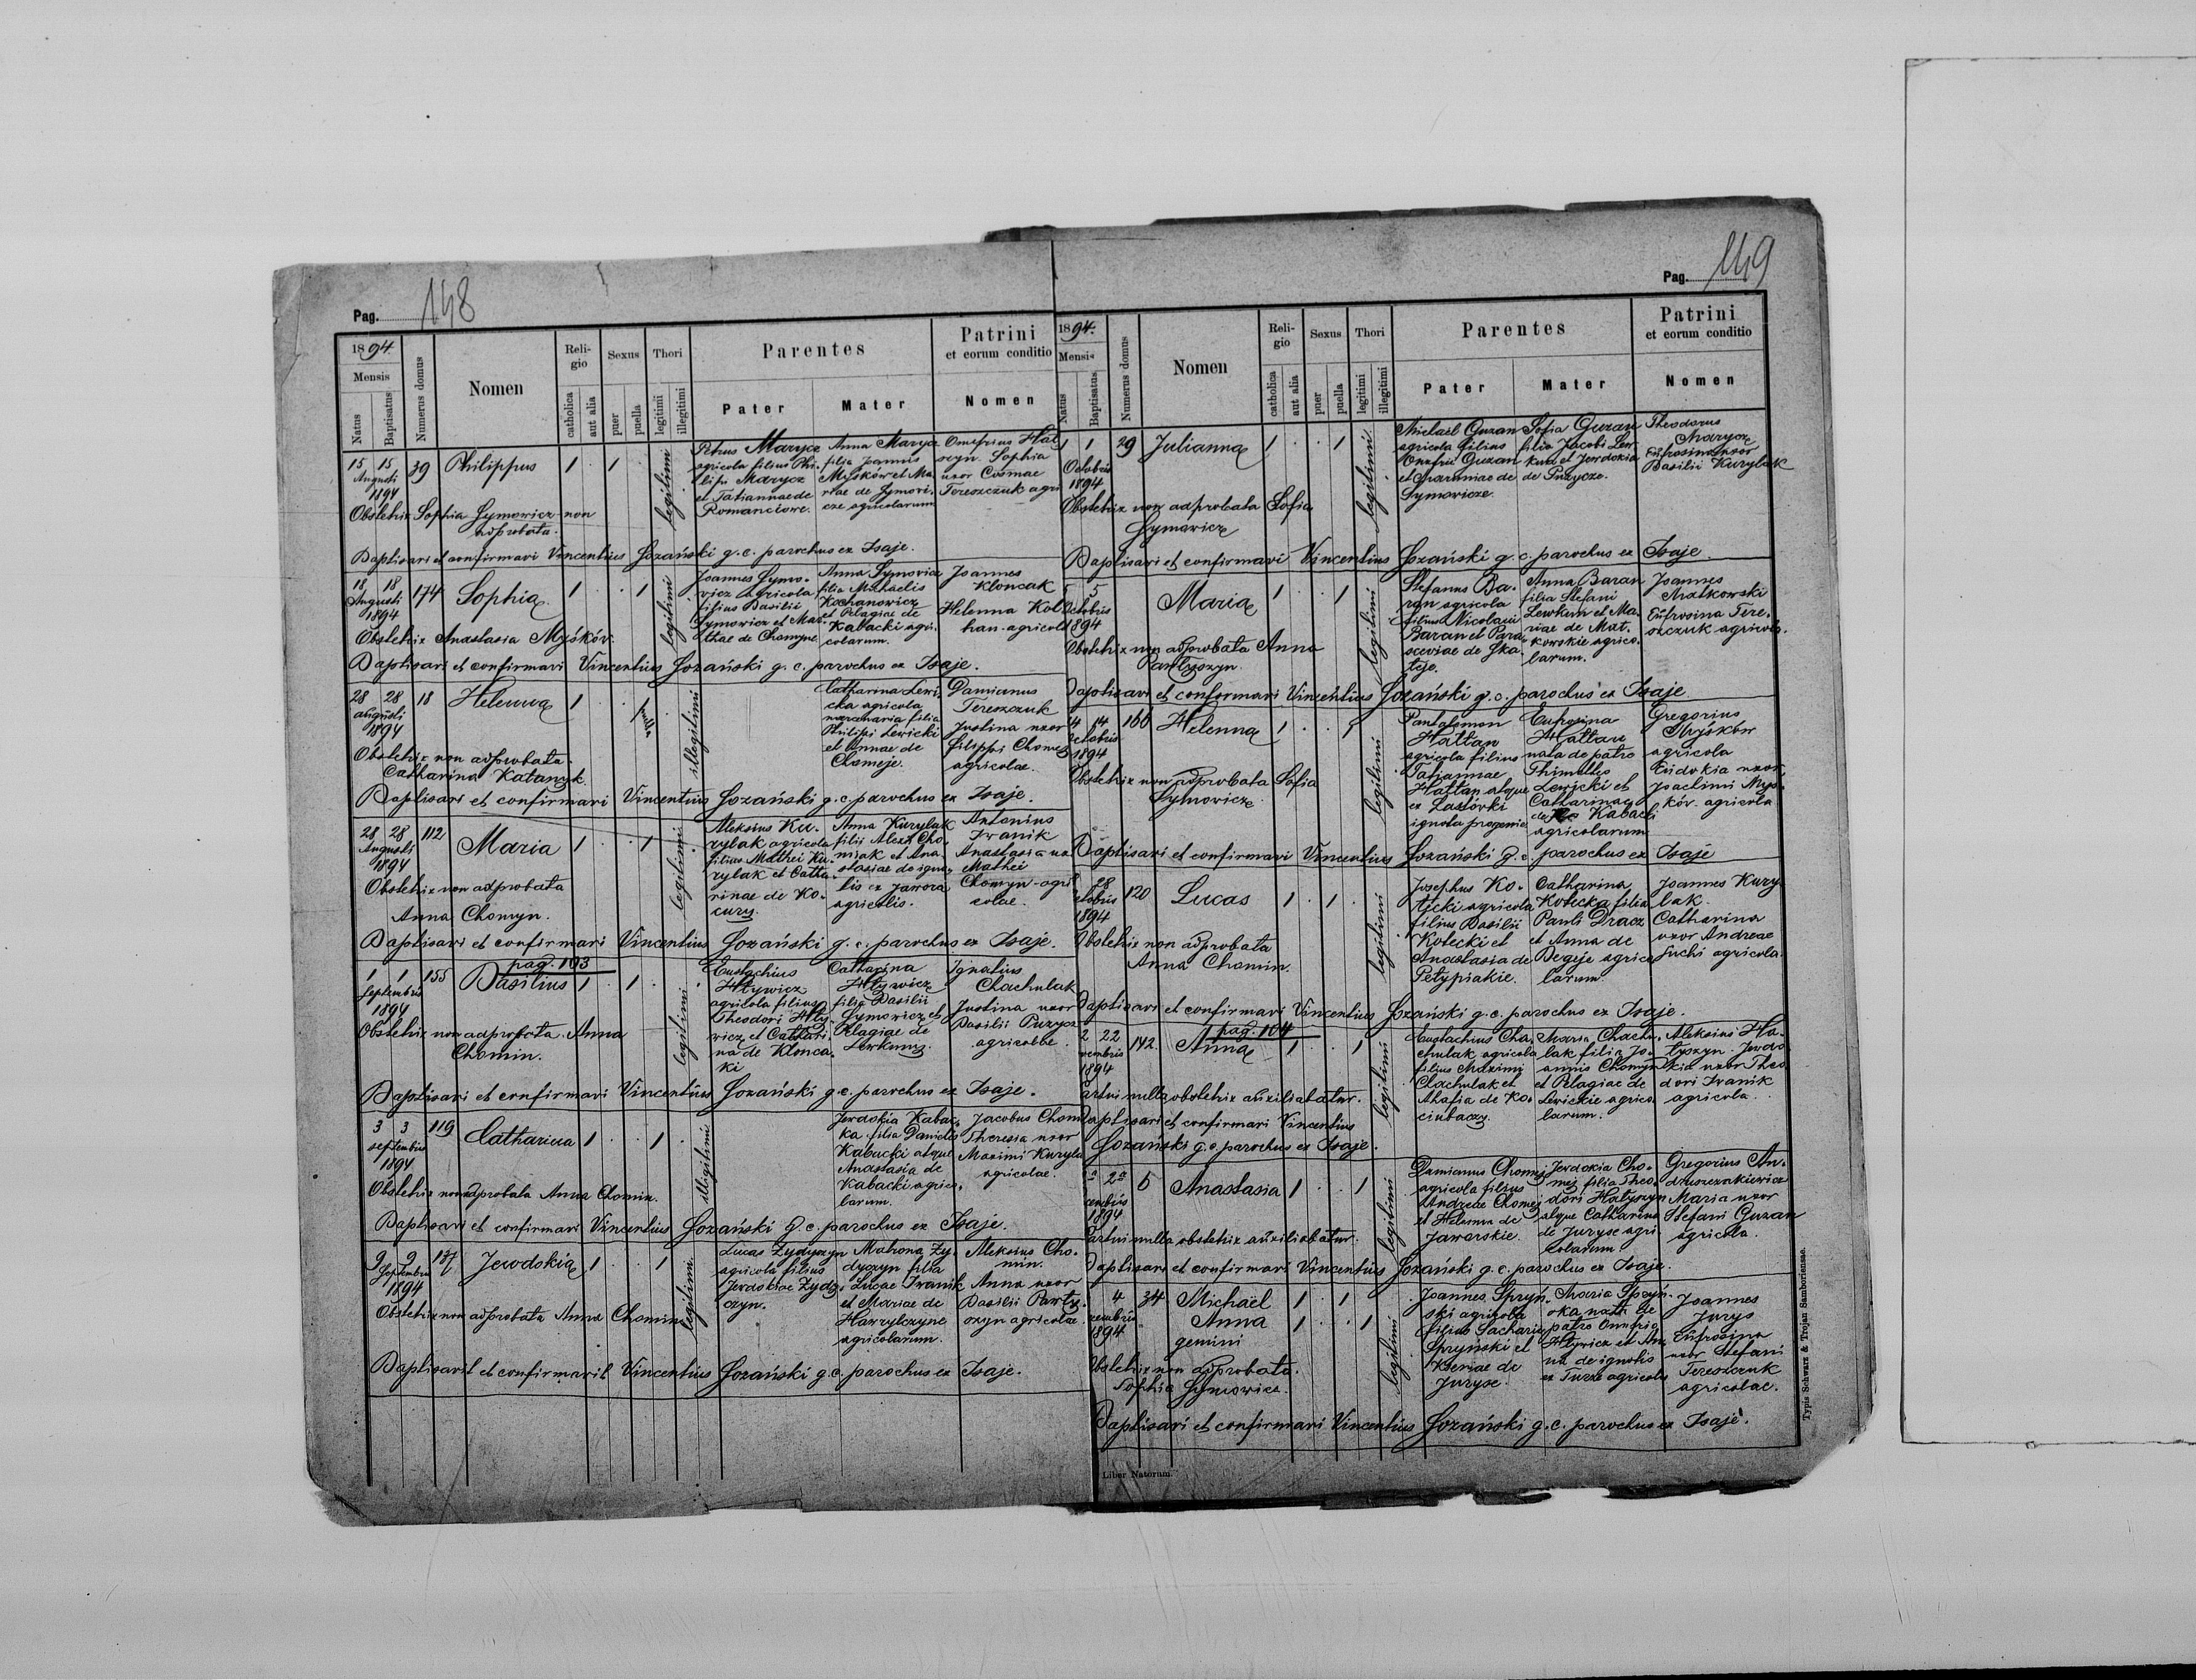 Pag. 148
1894.
Mensis
Natus
Baptisatus
Numerus domus
Nomen
Religio
catholica
aut alia
Sexus
puer
puella
Thori
legitimi
illegitimi
Parentes
Pater
Mater
Patrini
et eorum conditio
Nomen
15 15 39 Philippus 1 . 1 . legitimi
Augusti
1894
Petrus Marycz
agricola filius Phi-
lipi Marycz
et Tatiannae de
Romanciowe.
Anna Marycz
filia Joannis
Myśków et Ma-
riae de Symowi-
cze agricolarum
Onufrius Hal
Sophia
uxor Cosmae
Tereszczuk agri
Obstetrix Sophia Symowicz non
adprobata.
Baptisavi et confirmavi Vincentius Łozański g. c. parochus ex Isaje.
18 18 174 Sophia 1 . . 1 legitimi
Augusti
1894
Joannes Symo-
wicz agricola
filius Basilii
Symowicz et Mar-
thae de Chomyne
Anna Symowicz
filia Michaelis
Kochanowicz
et Pelagiae de
Kabacki agri-
colarum.
Joannes
Kloncak
Helenna Kol
han agricola
Obstetrix Anastasia Myśków.
Baptisavi et confirmavi Vincentius Łozański g. c. parochus ex Isaje.
28 28 18 Helenna 1 . . 1 illegitimi
augusti
1894
Catharina Lewi-
cka agricola
filia
Philipi Lewicki
et Annae de
Chomeje.
Damianus
Tereszczuk
Justina uxor
Filippi Chomej
agricolae.
Obstetrix non adprobata
Catharina Katanyk.
Baptisavi et confirmavi Vincentius Łozański g. c. parochus ex Isaje.
28 28 112 Maria 1 . . 1 legitimi
Augusti
1894
Aleksius Ku-
rylak agricola
filius Mathei Ku-
rylak et Catha-
rinae de Ko-
cury.
Anna Kurylak
filii Alexii Cho-
miak et Ana-
stasiae de igno-
tis ex Jawora
agricolis.
Antonius
Iwanik
Anastasia ux.
Mathei
Chomyn agri
colae.
Obstetrix non adprobata
Anna Chomyn.
Baptisavi et confirmavi Vincentius Łozański g. c. parochus ex Isaje.
pag. 103
1 1 155 Basilius 1 . 1 . legitimi
Septembris
1894
Eustachius
Hływicz
agricola filius
Theodori Hły-
wicz et Cathari-
na de Klonca-
ki
Catharina
Hływicz
filia Basilii
Symowicz et
Pelagiae de
Lewkuny.
Ignatius
Chachulak
Justina uxor
Basilii Puzycz
agricolae.
Obstetrix non adprobata Anna
Chomin.
Baptisavi et confirmavi Vincentius Łozański g. c. parochus ex Isaje.
3 3 119 Catharina 1 . . 1 . illigitimi
septembris
1894
Jewdokia Kabac-
ka filia Danielis
Kabacki atque
Anastasia de
Kabacki agrico-
larum.
Jacobus Chom
Theresia uxor
Maximi Kuryla
agricolae.
Obstetrix non adprobata Anna Chomin.
Baptisavi et confirmavi Vincentius Łozański g. c. parochus ex Isaje.
9 9 137 Jewdokia 1 . . 1 legitimi
Septembris
1894
Lucas Zydyczyn
agricola filius
Jewdokiae Zydy-
czyn.
Matrona Zy-
dyczyn filia
Lucae Iwanik
et Mariae de
Hawrylczyne
agricolarum.
Aleksius Cho-
min.
Anna uxor
Basilii Party-
czyn agricolae.
Obstetrix non adprobata Anna Chomin
Baptisavit et confirmavit Vincentius Łozański g. c. parochus ex Isaje.
Pag. 149
1894.
Mensis
Natus
Baptisatus
Numerus domus
Nomen
Religio
catholica
aut alia
Sexus
puer
puella
Thori
legitimi
illegitimi
Parentes
Pater
Mater
Patrini
et eorum conditio
Nomen
1 1 29 Julianna 1 . . 1 legitimi
Octobris
1894
Michaël Guzan
agricola filius
Onufrii Guzan
et Maramiae de
Symowicze.
Sofia Guzan
filia Jacobi Lew-
kun et Jewdokia
de Puzycze.
Theodorus
Marycz
Eufrosina uxor
Basilii Kurylak
Obstetrix non adprobata Sofia
Symowicz
Baptisavi et confirmavi Vincentius Łozański g. c. parochus ex Isaje.
5 5 Maria 1 . . 1 legitimi
Octobris
1894
Stefanus Ba-
ran agricola
filius Nicolaui
Baran et Para-
sceviae de Ska-
teje.
Anna Baran
filia Stefani
Lewkun et Ma-
riae de Mat-
kowskie agrico-
larum.
Joannes
Matkowski
Eufrosina Tere-
szczuk agricola.
Obstetrix non adprobata Anna
Partyczyn.
Baptisavi et confirmavi Vincentius Łozański g. c. parochus ex Isaje
14 14 166 Helenna 1 . . 1 legitimi
Octobris
1894
Pantalemon
Hattan
agricola filius
Tatiannae
Hattan atque
ex Łastówki
ignota progenie
Eufrosina
Hattan
nata de patro
Thimotteo
Lewicki et
Catharinae
de Kabacki
agricolarum
Gregorius
Myśków
agricola
Eudokia uxor
Joachimi Myś-
ków agricola
Obstetrix non adprobata Sofia
Symowicz.
Baptisavi et confirmavi Vincentius Łozański g. c. parochus ex Isaje
28 120 Lucas 1 . 1 . legitimi
1894
Josephus Ko-
tecki agricola
filius Basilii
Kotecki et
Anastasia de
Petypiakie.
Catharina
Kotecka filia
Pauli Dracz
et Anna de
Dergeje agrico-
larum.
Joannes Kury-
lak.
Catharina
uxor Andreae
Luchi agricola.
Obstetrix non adprobata
Anna Chomin.
Baptisavi et confirmavi Vincentius Łozański g. c. parochus ex Isaje.
pag. 104
2 22 142 Anna 1 . . 1 legitimi
vembris
1894
Eustachius Cha-
chulak agricola
filius Maximi
Chachulak et
Ahafia de Ko-
ciubaczy.
Maria Chachu-
lak filia Jo-
annis Chomyn
et Pelagiae de
Lewickie agrico-
larum.
Aleksius Ha-
tyszyn. Jewdo-
kia uxor Theo
dori Iwanik
agricola.
Partui nulla obstetrix auxiliabatur.
Baptisavi et confirmavi Vincentius
Łozański g. c. parochus ex Isaje.
2 5 Anastasia 1 . . 1 legitimi
cembris
1894
Damianus Chomej
agricola filius
Andreae Chomej
et Helenna de
Jaworskie.
Jewdokia Cho-
mej filia Theo-
dori Hatyszyn
atque Catharina
de Juryse agri-
colarum
Gregorius An-
druszczakiewicz
Maria uxor
Stefani Guzan
agricola.
Partui nulla obstetrix auxiliabatur.
Baptisavi et confirmavi Vincentius Łozański g. c. parochus ex Isaje.
4 34 Michaël 1 . 1 . legitimi
Anna 1 . . 1
gemini
cembris
1894
Joannes Spryń-
ski agricola
filius Zacharia
Spryński et
Kseniae de
Juryse.
Maria Spryń-
ska nata de
patro Onufrio
Hływicz et An-
na de ignotis
ex Turze agricolis
Joannes
Jurys
Eufrosina
uxor Stefani
Tereszczuk
agricolae.
Obstetrix non adprobata.
Sophia Symowicz.
Baptisavi et confirmavi Vincentius Łozański g. c. parochus ex Isaje.
Liber Natorum.
Typis Schwarz & Trojan Samboriensae.